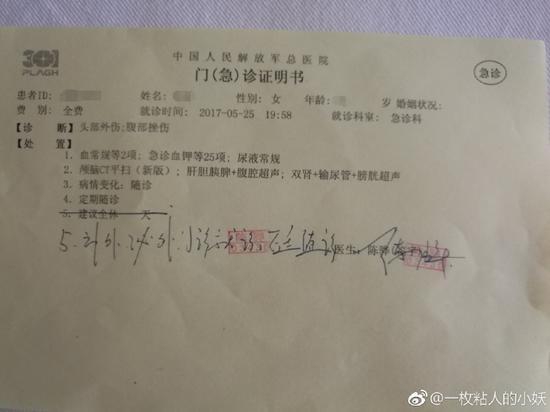 301
PLAGH
中国人民解放军总医院
门(急)诊证明书
急诊
患者ID: 姓名: 性别: 女 年龄: 岁 婚姻状况:
费 别: 全费 就诊时间: 2017-05-25 19:58 就诊科室: 急诊科
【诊 断】头部外伤;腹部挫伤
【处 置】
1. 血常规等2项; 急诊血钾等25项; 尿液常规
2. 颅脑CT平扫(新版); 肝胆胰脾+腹腔超声; 双肾+输尿管+膀胱超声
3. 病情变化: 随诊
4. 定期随诊
5. 建议全休 天
5. 门诊 医生: 陈
@一枚粘人的小妖